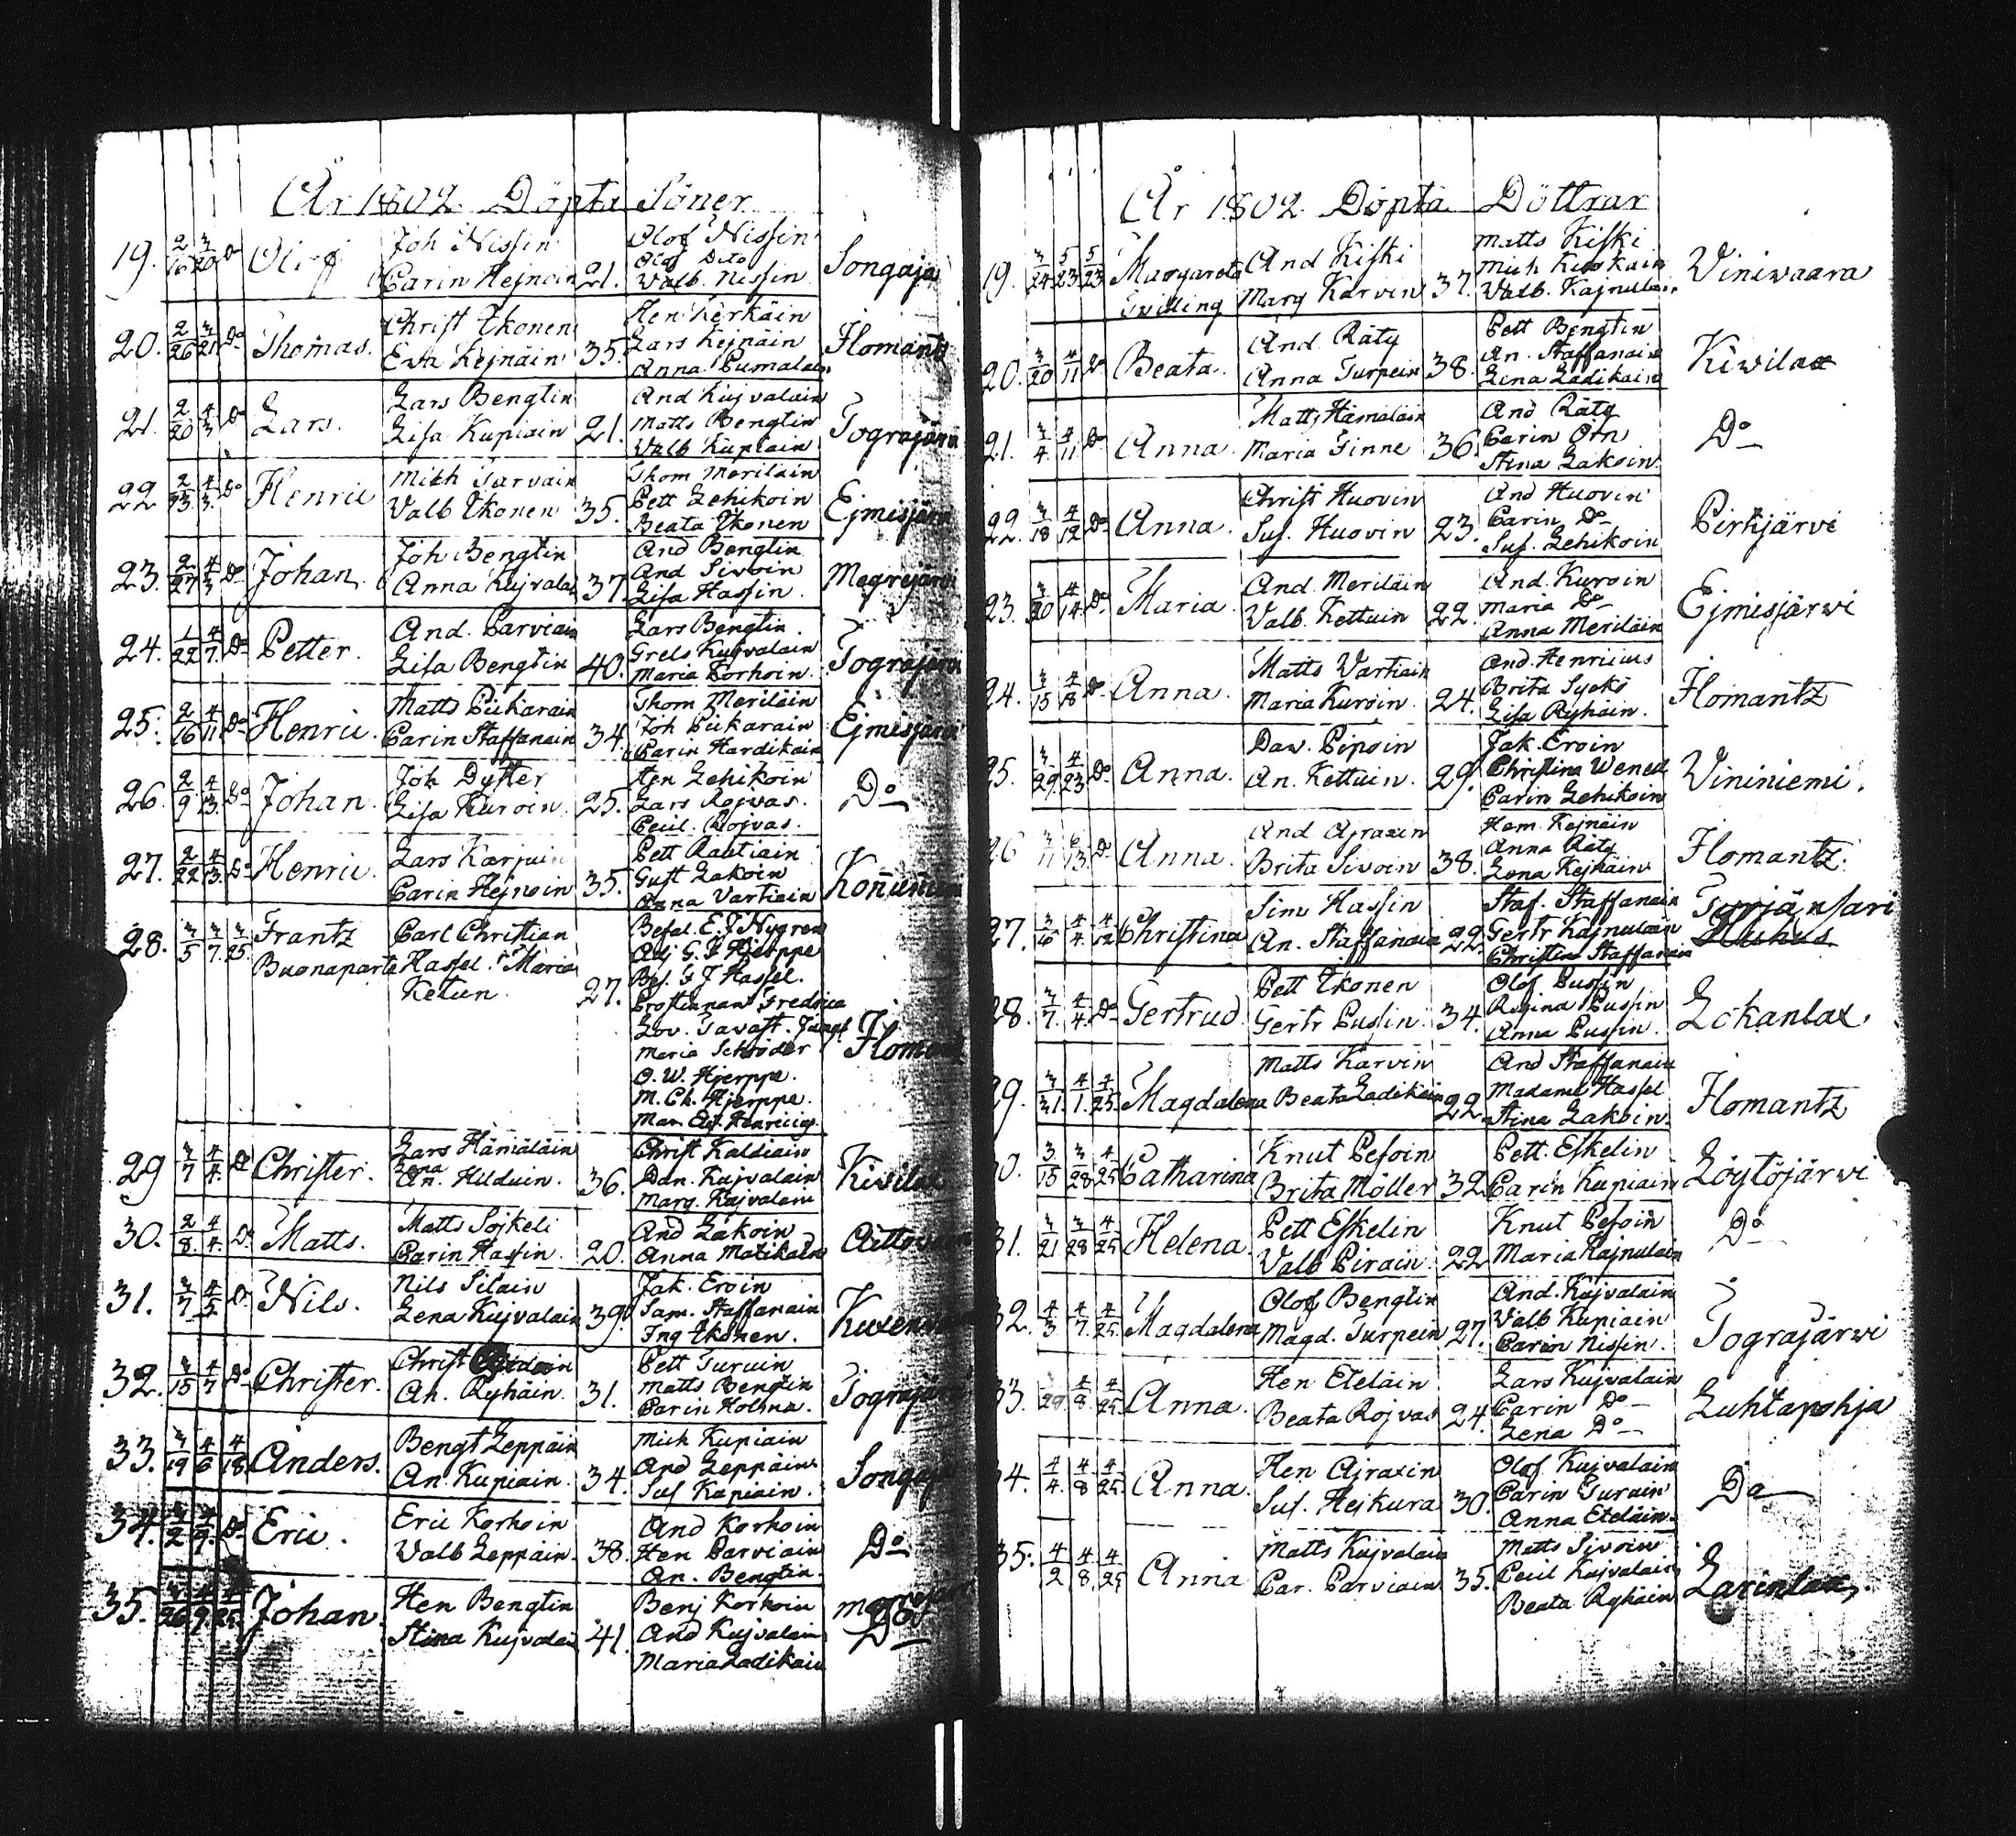 År 1802 Döpta Söner
19. 2/16 3/20 Do Olof Joh Nissin Carin Hejnoin 21. Olof Nissin Olof Dito Valb. Nissin Songaja
20. 2/26 3/21 Do Thomas. Christ Ikonen Eva Kejnäin 35. Hen Kerkäin Lars Kejnäin Anna Pusmalain Ilomants
21. 2/20 4/3 Do Lars. Lars Bengtin Lisa Kupiain 21. And Kujvalain Matts Bengtin Valb Kupiain Tograjärvi
22 2/23 4/3 Do Henric Mich Tarvain Valb Ikonen 35. Thom Meriläin Pett Lehikoin Beata Ikonen Ejmisjärvi
23. 2/27 4/3 Do Johan. Joh Bengtin Anna Kujvalai 37. And Bengtin And Sivoin Lisa Hassin. Megrejärvi
24. 1/22 4/7. Do Petter. And. Parviain Lisa Bengtin 40. Lars Bengtin. Grels Kujvalain Maria Korhoin. Tograjärvi
25. 2/16 4/11 Do Henric. Matts Piikarain Carin Staffanain 34. Thom Meriläin Joh Piikarain Carin Hardikain Ejmisjärvi
26. 2/9 4/13. Do Johan. Joh Dyster Lisa Kuroin. 25. Hen Lehikoin Lars Rojvas. Cecil. Rojvas. Do
27. 2/22 4/13. Do Henric. Lars Karjuin Carin Hejnoin 35. Pett Rautiain Gust Lakoin Anna Vartiain
28. 3/5 3/7. 3/25. Frantz Carl Christian Befal. E. J Nygren
Buonaparte Hassel. Maria Adj G. F Hjerppe
Ketun. 27. Bef. G F Hassel.
Prostinnan Fredrica
Lov. Tavast. Jungf
Maria Schröder Ilomants
O. W. Hjerppe.
M. Ch. Hjerppe.
Mar. El. Henricius
29 3/7 4/4. Do Christer. Lars Hämäläin Lena An. Hilduin. 36. Christ Kaldiain Dan. Kujvalain Marg. Kujvalain Kivilax
30. 2/8. 4/4. Do Matts. Matts Sojkeli Carin Hassin. 20. And Lakoin Anna Matikain
31. 3/7 4/5 Do Nils. Nils Silain Lena Kujvalain 39. Jak. Eroin Sam. Staffanain Ing Ikonen.
32. 3/15 4/7 Do Christer. Christ An. Ryhäin. 31. Pett Turuin Matts Bengtin Carin Holma. Tograjärvi
33. 3/19 4/6 4/18 Anders. Bengt Leppäin An. Kupiain. 34. Mich Kupiain And Leppäin Sus Kupiain. Songaja
34. 3/2 4/9. Do Eric. Eric Korhoin Valb Leppäin. 38. And Korhoin Hen Parviain An. Bengtin. Do
35. 3/26 4/9 4/25. Johan. Hen Bengtin Stina Kujvalai 41. Benj Korhoin And Kujvalain Maria Ladikain Do
År 1802 Döpta Döttrar
19. 3/24 5/23 5/23 Margareta Tvilling And Kiski Marg Karvin 37. Matts Kiski Mich Kiiskäin Valb. Kajnulain Viniwaara
20. 3/20 4/11 Do Beata. And Räty Anna Turpein 38. Pett Bengtin An. Staffanain Lena Ladikain Kiwilax
21. 3/4. 4/11 Do Anna. Matts Hämäläin Maria Finne 36. And Räty Carin Orn Stina Lakoin. Do
22. 3/18 4/12 Do Anna. Christ Huovin Sus. Huovin 23. And Huovin Carin Do Sus. Lehikoin Pirhjärvi
23. 3/20 4/14. Do Maria. And. Meriläin Valb. Kettuin 22. And. Kuroin Maria Do Anna Meriläin Ejmisjärwi
24. 3/15 4/18 Do Anna. Matts Vartiain Maria Kuroin. 24. And. Henricius Brita Syckö Lisa Ryhäin. Ilomantz
25. 3/29 4/23 Do Anna. Dav. Piipoin An. Kettuin. 29. Jak. Eroin Christina Wened Carin Lehikoin Vininiemi.
26 3/11 6/13. Do Anna. And Ajraxin Brita Sivoin 38. Hem. Kejnäin Anna Räty Lena Kejnäin Ilomantz.
27. 3/6 4/4. Christina Sim Hassin An. Staffanain 22. Staf. Staffanain Gertr Kajnulain Christina Staffanain
28. 3/7. 4/4. Do Gertrud. Pett Ikonen Gertr Pussin. 34. Olof. Pussin Regina Pussin Anna Pussin. Lokanlax.
29. 3/31. 4/1. 4/25. Magdalena Matts Karvin Beata Ladikain 22. And Staffanain Madame Hassel Stina Lakoin. Ilomantz
30. 3/15 3/28 4/25 Catharina Knut Pesoin Brita Möller 32 Pett. Eskelin Carin Kupiain Löytöjärwi
31. 3/21 3/28 4/25 Helena. Pett Eskelin Valb Pirain. 22 Knut Pesoin Maria Kajnulain Do
32. 4/3 4/7. 4/25. Magdalena Olof Bengtin Magd. Turpein 27. And. Kujvalain Valb Kupiain Carin Nissin. Tograjärwi
33. 3/29 4/8. 4/25 Anna. Hen Eteläin Beata Rojvas 24. Lars Kujvalain Carin Do Lena Do Luhtapohja
34. 4/4. 4/8 4/25 Anna. Hen Ajraxin Sus. Hejkura 30. Olof. Kujvalain Carin Turuin Anna Eteläin. Do
35. 4/2 4/8. 4/25 Anna Matts Kujvalain Car. Parviain 35. Matts Sivoin Cecil Kujvalain Beata Ryhäin Larinlax.